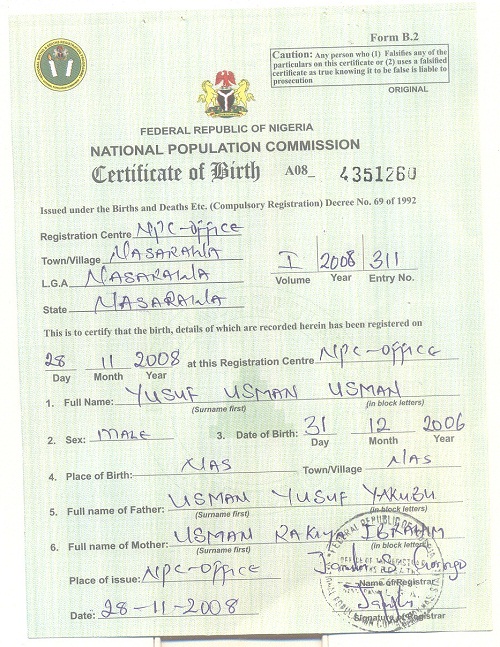 Form B.2
Caution: Any person who (1) Falsifies any of the particulars on this certificate or (2) uses a falsified certificate as true knowing it to be false is liable to prosecution
ORIGINAL
FEDERAL REPUBLIC OF NIGERIA
NATIONAL POPULATION COMMISSION
Certificate of Birth A08_ 4351260
Issued under the Births and Deaths Etc. (Compulsory Registration) Decree No. 69 of 1992
Registration Centre NPC-OFFICE
Town/Village NASARAWA
L.G.A NASARAWA
State NASARAWA
I 2008 311
Volume Year Entry No.
This is to certify that the birth, details of which are recorded herein has been registered on
28 11 2008 at this Registration Centre NPC-OFFICE
Day Month Year
1. Full Name: YUSUF USMAN USMAN
(Surname first) (in block letters)
2. Sex: MALE 3. Date of Birth: 31 12 2006
Day Month Year
4. Place of Birth: NAS Town/Village NAS
5. Full name of Father: USMAN YUSUF YAKUBU
(Surname first) (in block letters)
6. Full name of Mother: USMAN RAKIYA IBRAHIM
(Surname first) (in block letters)
Place of issue: NPC-OFFICE
Name of Registrar
Date: 28-11-2008
Signature of Registrar